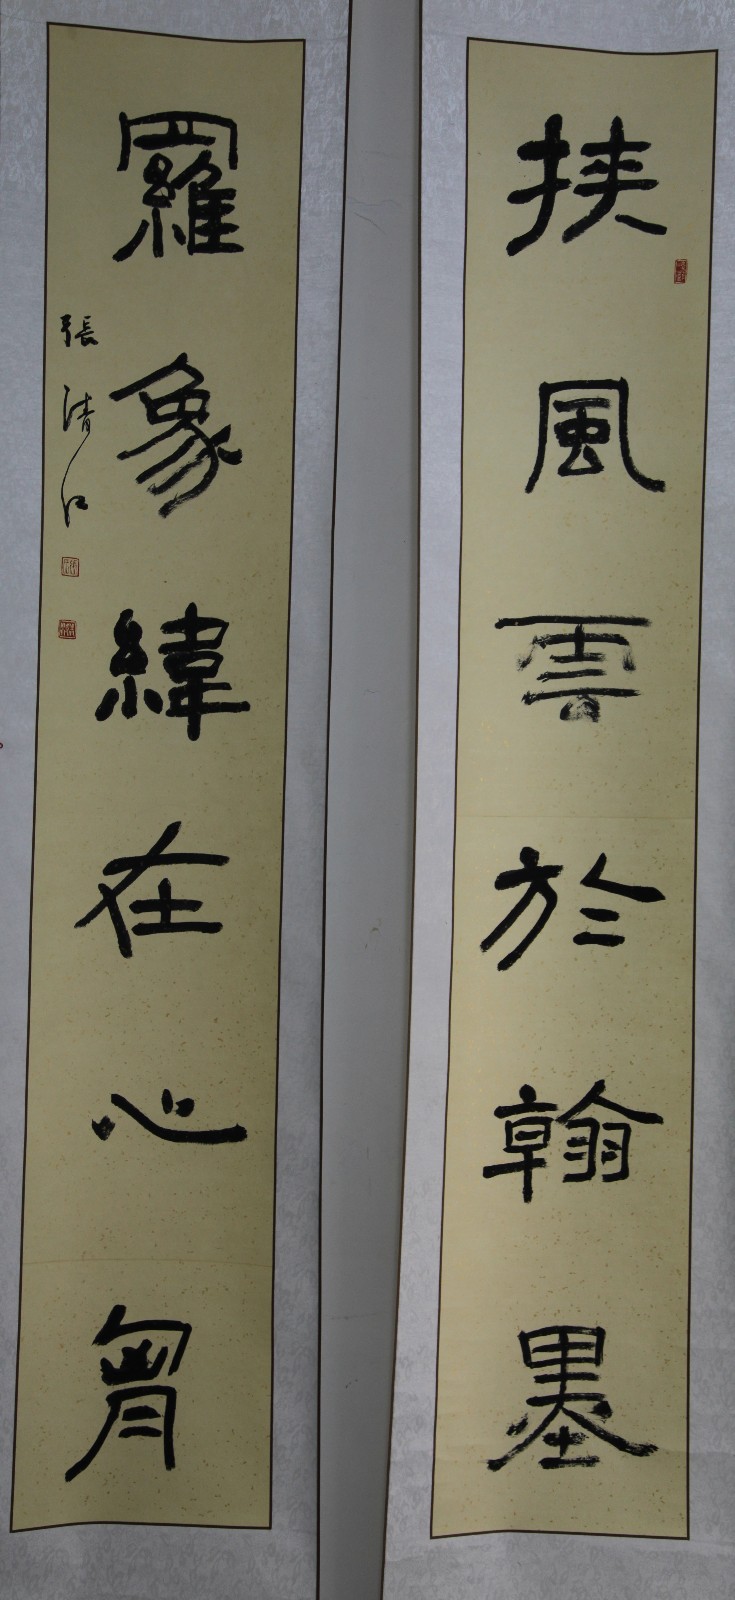 挟風雲於翰墨
羅象緯在心胷
張清江